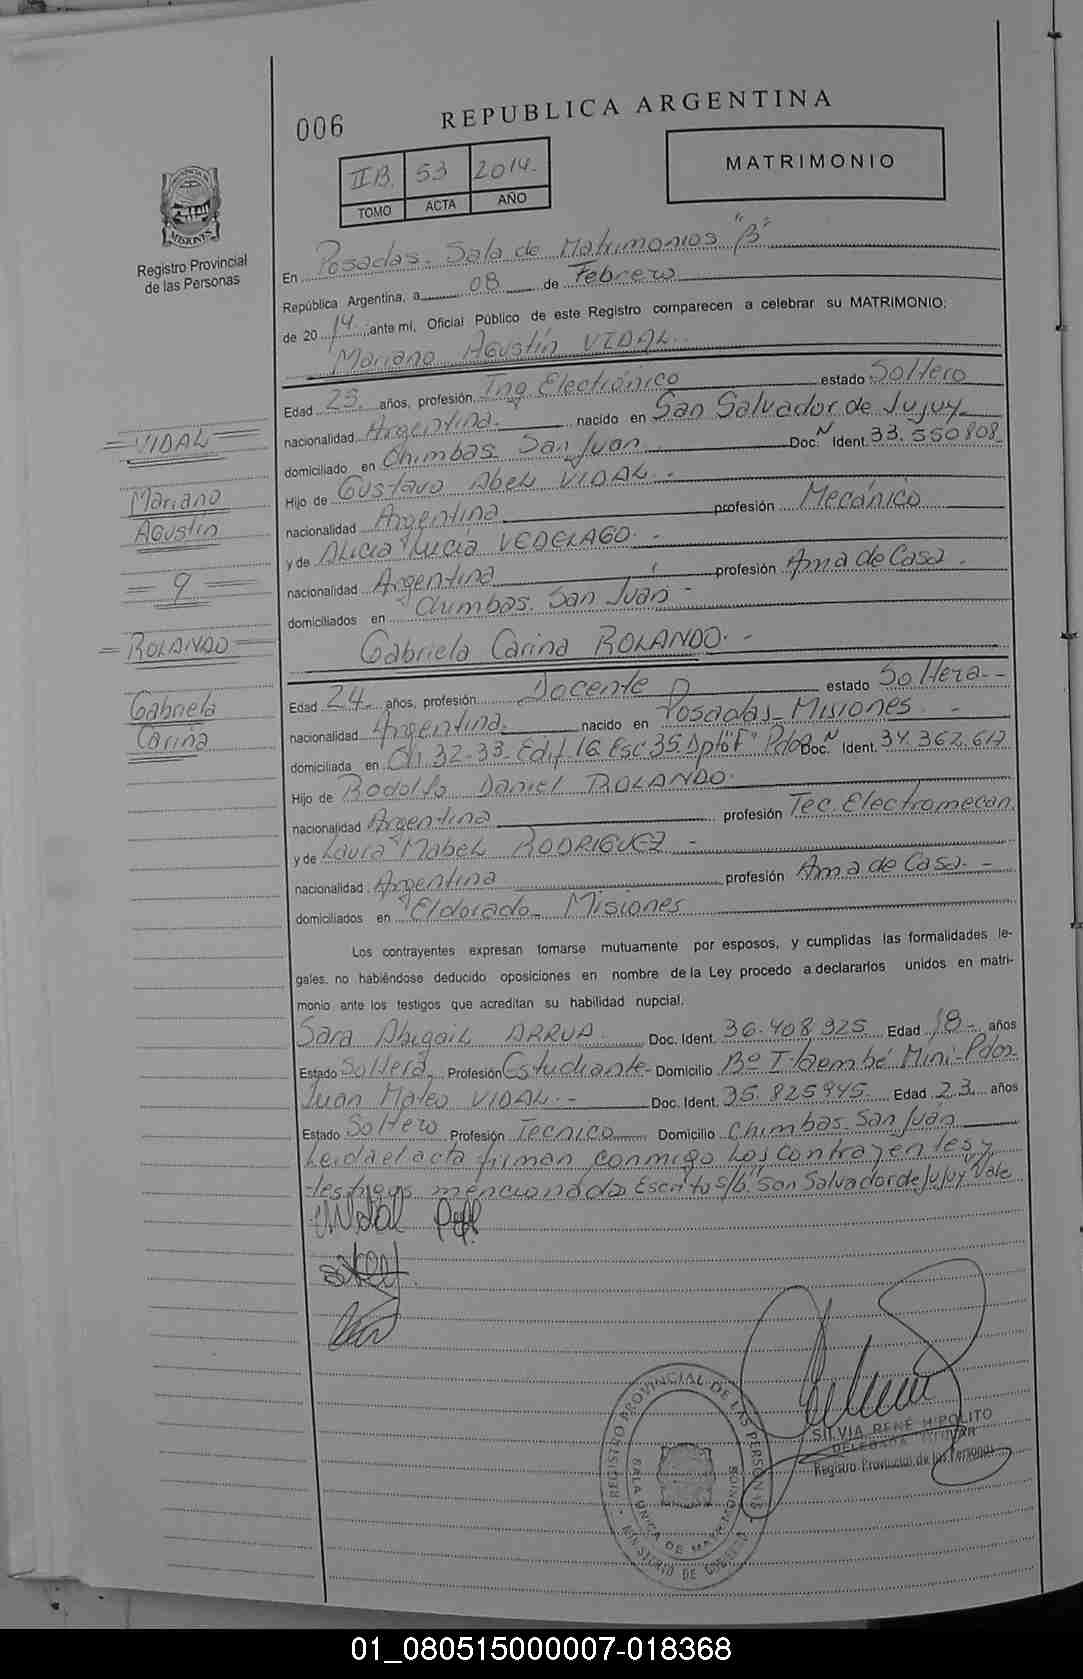 006
REPUBLICA ARGENTINA
IIB. 53 2014.
TOMO ACTA AÑO
MATRIMONIO
MISIONES
Registro Provincial
de las Personas
En Posadas. Sala de Matrimonios "B"
República Argentina, a 08 de Febrero
de 2014. ante mí, Oficial Público de este Registro comparecen a celebrar su MATRIMONIO:
Mariano Agustín VIDAL.
Edad 25. años, profesión Ing Electrónico estado Soltero
nacionalidad Argentina. nacido en San Salvador de Jujuy
domiciliado en Chimbas San Juan Doc. N Ident. 33.550808
Hijo de Gustavo Abel VIDAL. -
nacionalidad Argentina profesión Mecánico
y de Alicia Lucia VEDELAGO. -
nacionalidad Argentina profesión Ama de Casa.
domiciliados en Chimbas. San Juan -
Gabriela Carina ROLANDO. -
= VIDAL =
Mariano
Agustin
= y =
= ROLANDO =
Gabriela
Carina
Edad 24. años, profesión Docente estado Soltera.-
nacionalidad Argentina. nacido en Posadas - Misiones. -
domiciliada en Ch. 32-33. Edif. 16 Esc 35. Dpto "F" Pdas Doc. N Ident. 34.362.612
Hijo de Rodolfo Daniel ROLANDO.
nacionalidad Argentina profesión Tec. Electromecan.
y de Laura Mabel RODRIGUEZ -
nacionalidad Argentina profesión Ama de Casa. -
domiciliados en Eldorado - Misiones
Los contrayentes expresan tomarse mutuamente por esposos, y cumplidas las formalidades le-
gales, no habiéndose deducido oposiciones en nombre de la Ley procedo a declararlos unidos en matri-
monio ante los testigos que acreditan su habilidad nupcial.
Sara Abigail ARRUA. Doc. Ident. 36.408.925 Edad 18 - años
Estado Soltera. Profesión Estudiante - Domicilio Bº Itaembé Mini - Pdas -
Juan Mateo VIDAL. - Doc. Ident. 35.825945. Edad 23 años
Estado Soltero Profesión Tecnico Domicilio Chimbas - San Juan
Leida el acta firman conmigo Los contrayentes y
testigos mencionados Escrito s/b "San Salvador de Jujuy" Vale
REGISTRO PROVINCIAL DE LAS PERSONAS
SALA UNICA DE MATRIMONIOS
MINISTERIO DE GOBIERNO
SILVIA RENE HIPOLITO
DELEGADA TITULAR
Registro Provincial de las Personas
01_080515000007-018368